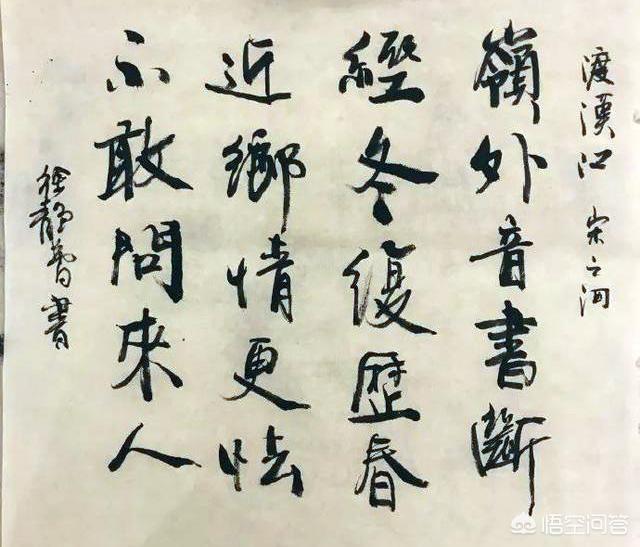 渡漢江 宋之问
嶺外音書斷
經冬復歷春
近鄉情更怯
不敢問來人
徐静書
悟空问答